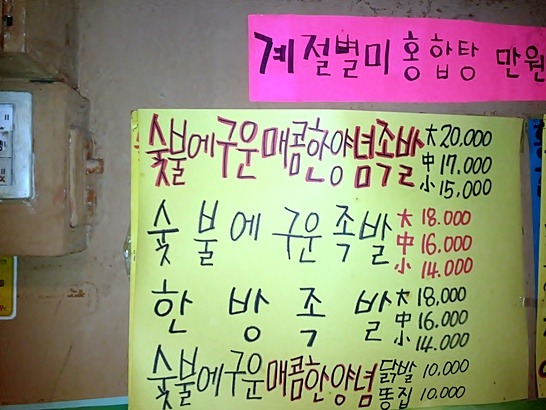 계절별미 홍합탕 만원
숯불에구운매콤한양념족발 大 20,000
中 17.000
小 15,000
숯불에 구운족발 大 18.000
中 16.000
小 14.000
한방족발 大 18,000
中 16.000
小 14.000
숯불에구운매콤한양념 닭발 10.000
똥집 10.000